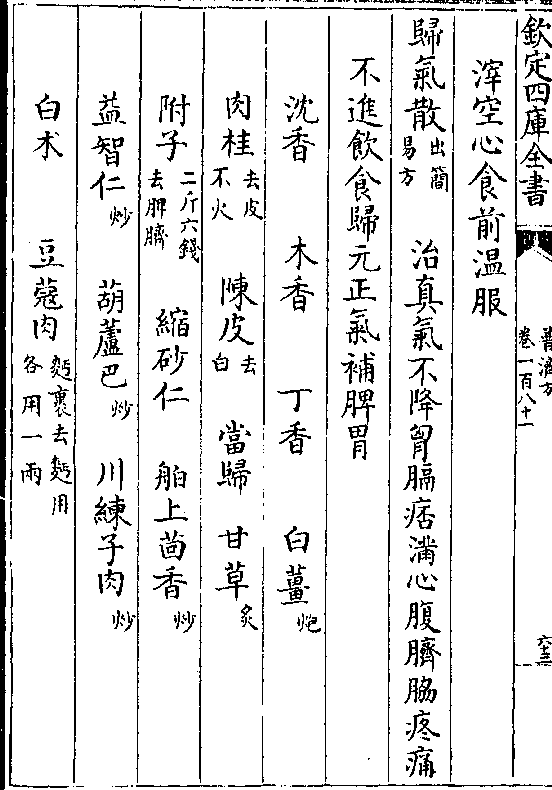 欽定四庫全書
普濟方
卷一百八十一
六十三
滓空心食前温服
歸氣散出簡易方 治真氣不降胷膈痞滿心腹臍脇疼痛
不進飲食歸元正氣補脾胃
沈香 木香 丁香 白薑炮
肉桂去皮不火 陳皮去白 當歸 甘草炙
附子二斤六錢去脾臍 縮砂仁 舶上茴香炒
益智仁炒 葫蘆巴炒 川練子肉炒
白术 豆蔻肉麪裹去麪用各用一兩